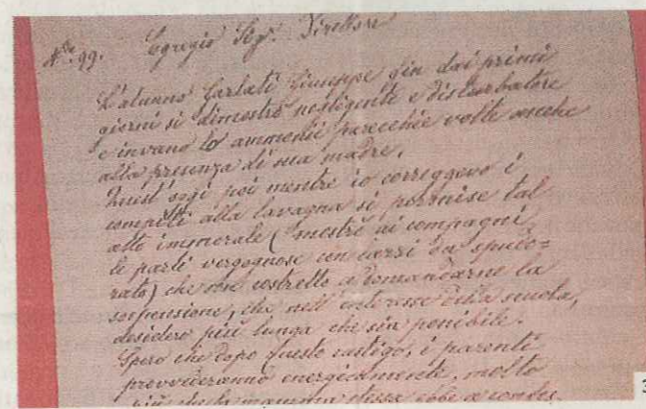 N.º 99. Egregio Sigr. Direttore
L'alunno Carlati Giuseppe fin dai primi
giorni si dimostrò negligente e disturbatore
e invano lo ammonii parecchie volte anche
alla presenza di sua madre.
Quest'oggi poi mentre io correggevo i
compiti alla lavagna si permise tal
atto immorale (mostrò ai compagni
le parti vergognose con lazzi da spudo=
rato) che son costretto a domandarne la
sospensione, che nell'interesse della scuola,
desidero più lunga che sia possibile.
Spero che dopo questo castigo, i parenti
provvederanno energicamente, molto
più che la mamma stessa ebbe a
3